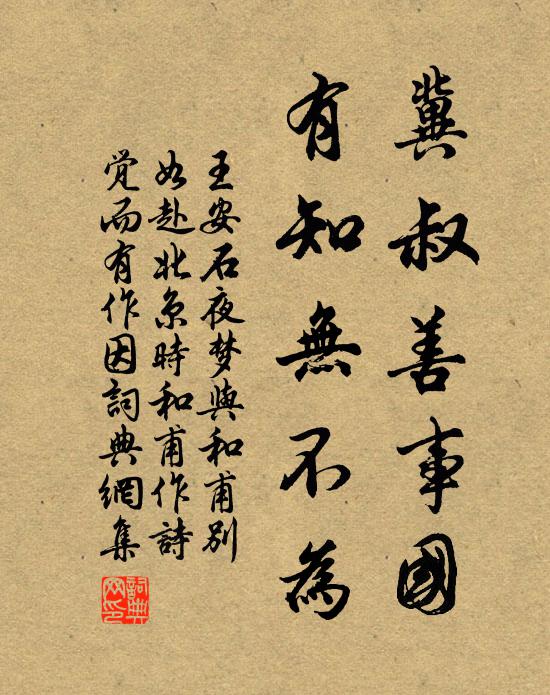 冀叔善事國
有知無不為
王安石夜梦與和甫别
如赴北京時和甫作詩
觉而有作因詞典網集
詞典網印